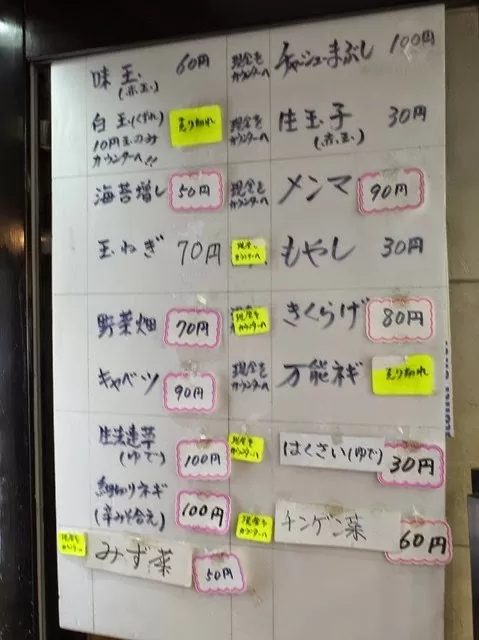 味玉 60円
(赤玉)
現金を
カウンターへ
チャーシューまぶし 100円
白玉(くずれ) 売り切れ
10円玉のみ
カウンターへ!!
現金を
カウンターへ
生玉子 30円
(赤玉)
海苔増し 50円
現金を
カウンターへ
メンマ 90円
玉ねぎ 70円
現金を
カウンターへ
もやし 30円
野菜畑 70円
現金を
カウンターへ
きくらげ 80円
キャベツ 90円
現金を
カウンターへ
万能ネギ 売り切れ
生ほうれん草
(ゆで) 100円
現金を
カウンターへ
はくさい(ゆで) 30円
細切りネギ
(辛みそ合え) 100円
現金を
カウンターへ
チンゲン菜 60円
現金を
カウンターへ
みず菜 50円